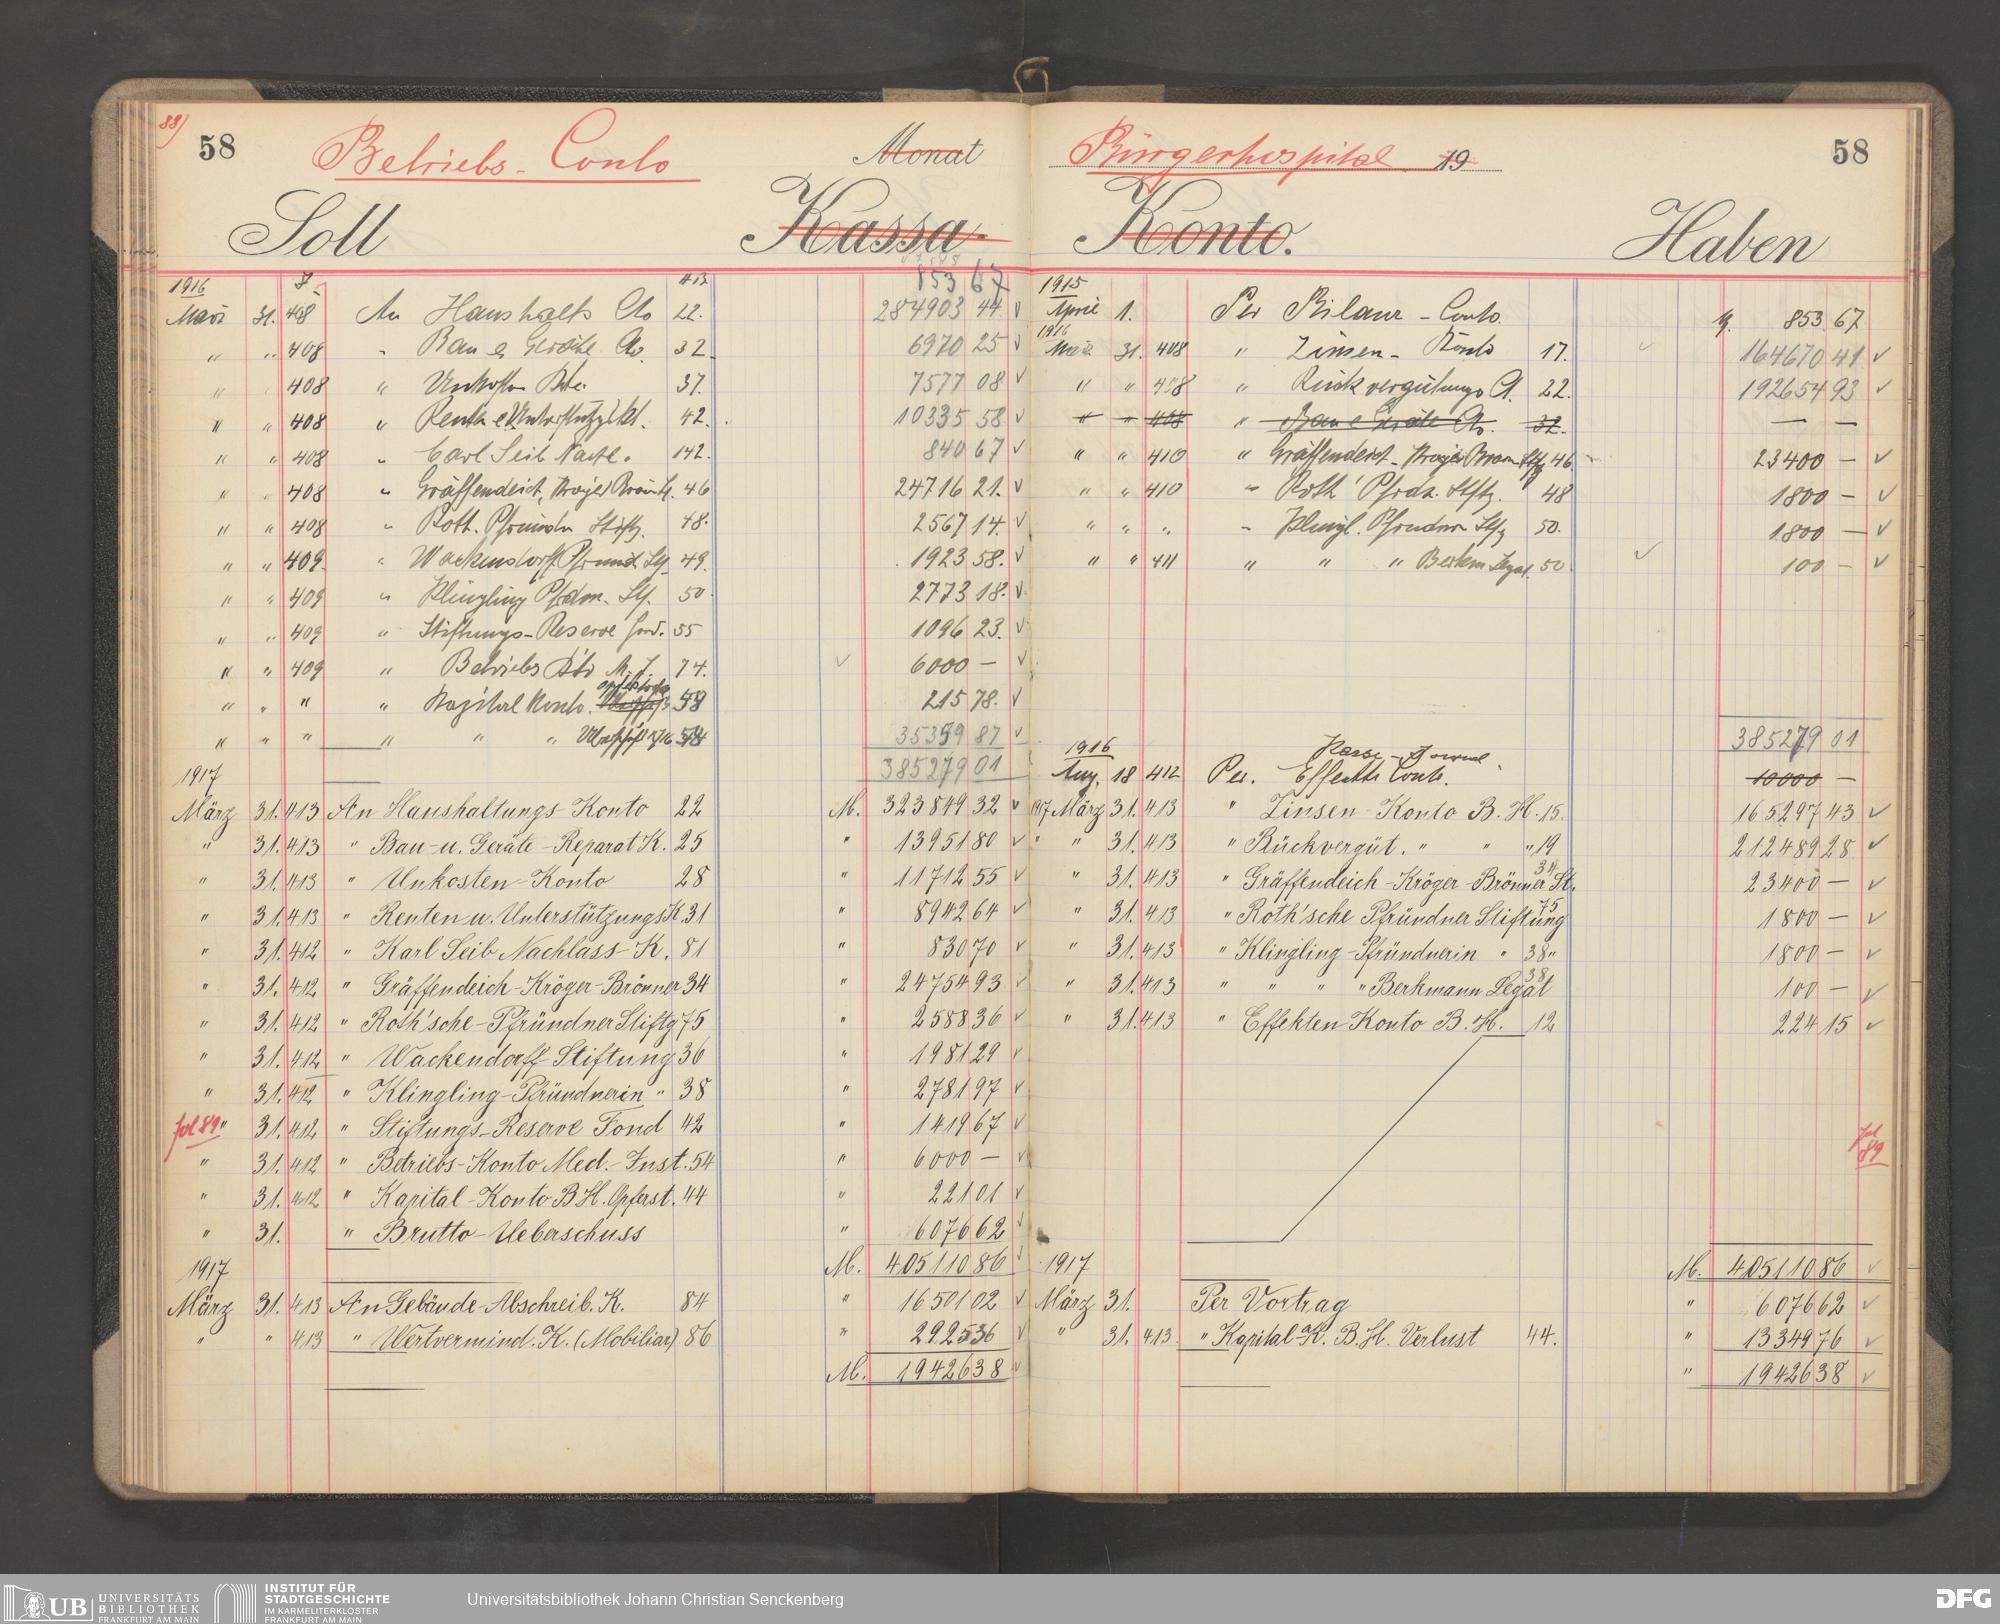 88)
58
Betriebs-Conto
Monat
Soll
Kassa-
853 67
1916
März 31. 408 An Haushalts Cto 22. 284903 44
" " 408 " Bau & Geräte Cto. 32 6970 25
" 408 " Unkosten 37. 7577 08
" " 408 " 42. 10335 58
" " 408 " Carl Seib Nachl. 142. 840 67
" " 408 " Gräffendeich, 46 24716 21.
" " 408 " Roth. Pfründn Stiftg. 48. 2567 14.
" " 409. " Wackendorff Pfründ St. 49. 1923 58.
" " 409 " Klingling Pfdnn. Stf. 50 2773 18.
" " 409 " Stiftungs-Reserve Fond. 55 1096 23.
" " 409 " Betriebs Kto M. I. 74. 6000 —
" " " " Kapital Konto. 58 215 78.
" " " " " " 58 35359 87
385279 01
1917
März 31. 413 An Haushaltungs-Konto 22 M. 323849 32
" 31. 413 " Bau- u. Geräte-Reparat K. 25 " 13951 80
" 31. 413 " Unkosten-Konto 28 " 11712 55
" 31. 413 " Renten u. Unterstützungs K. 31 " 8942 64
" 31. 412 " Karl Seib Nachlass-K. 81 " 830 70
" 31. 412 " Gräffendeich-Kröger-Brönner 34 " 24754 93
" 31. 412 " Roth'sche-Pfründner Stiftg 75 " 2588 36
" 31. 412 " Wackendorff-Stiftung 36 " 1981 29
" 31. 412 " Klingling-Pfründnerin " 38 " 2781 97
fol 89 " 31. 412 " Stiftungs-Reserve Fond 42 " 1419 67
" 31. 412 " Betriebs-Konto Med.-Inst. 54 " 6000 —
" 31. 412 " Kapital-Konto B H. Opferst. 44 " 221 01
" 31. " Brutto-Ueberschuss " 6076 62
1917 M. 405110 86
März 31. 413 An Gebäude-Abschreib. K. 84 " 16501 02
" " 413 " Wertvermind. K. (Mobiliar) 86 " 2925 36
M. 19426 38
Bürgerhospital 19
58
Konto.
Haben
1915
April 1. Per Bilanz-Conto. M. 853 67
1916
März 31. 408 " Zinsen-Konto 17. 164670 41
" " 408 " Rückvergütungs Ct. 22. 192654 93
" " 408 " Bau & Geräte Cto. 32. — —
" " 410 " Gräffendeich-Kröger Brönn Stftg 46 23400 —
" " 410 " Roth' Pfrdn. Stftg. 48 1800 —
" " " " Klingl. Pfründnn Stftg 50. 1800 —
" " 411 " " " Berkm Legat. 50 100 —
385279 01
1916 Kassa-Journal
Aug. 18 412 Per. Effekten Conto. 10000 —
1917 März 31. 413 " Zinsen-Konto B. H. 15. 165297 43
" " 31. 413 " Rückvergüt. " " " 19 212489 28
" 31. 413 " Gräffendeich-Kröger-Brönner St. 34 23400 —
" 31. 413 " Roth'sche Pfründner Stiftung 75 1800 —
" 31. 413 " Klingling-Pfründnerin " 38 " 1800 —
" 31. 413 " " " " Berkmann Legat 38 100 —
" 31. 413 " Effekten Konto B. H. 12 224 15
fol 89
1917 M. 405110 86
März 31. Per Vortrag " 6076 62
" 31. 413. " Kapital-K. B. H. Verlust 44. " 13349 76
" 19426 38
UB UNIVERSITÄTS BIBLIOTHEK FRANKFURT AM MAIN
INSTITUT FÜR STADTGESCHICHTE IM KARMELITERKLOSTER FRANKFURT AM MAIN
Universitätsbibliothek Johann Christian Senckenberg
DFG